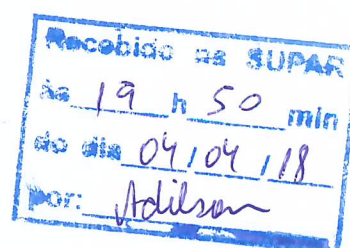 Recebido na SUPAR
às 19 h 50 min
do dia 04/04/18
por: Adilson